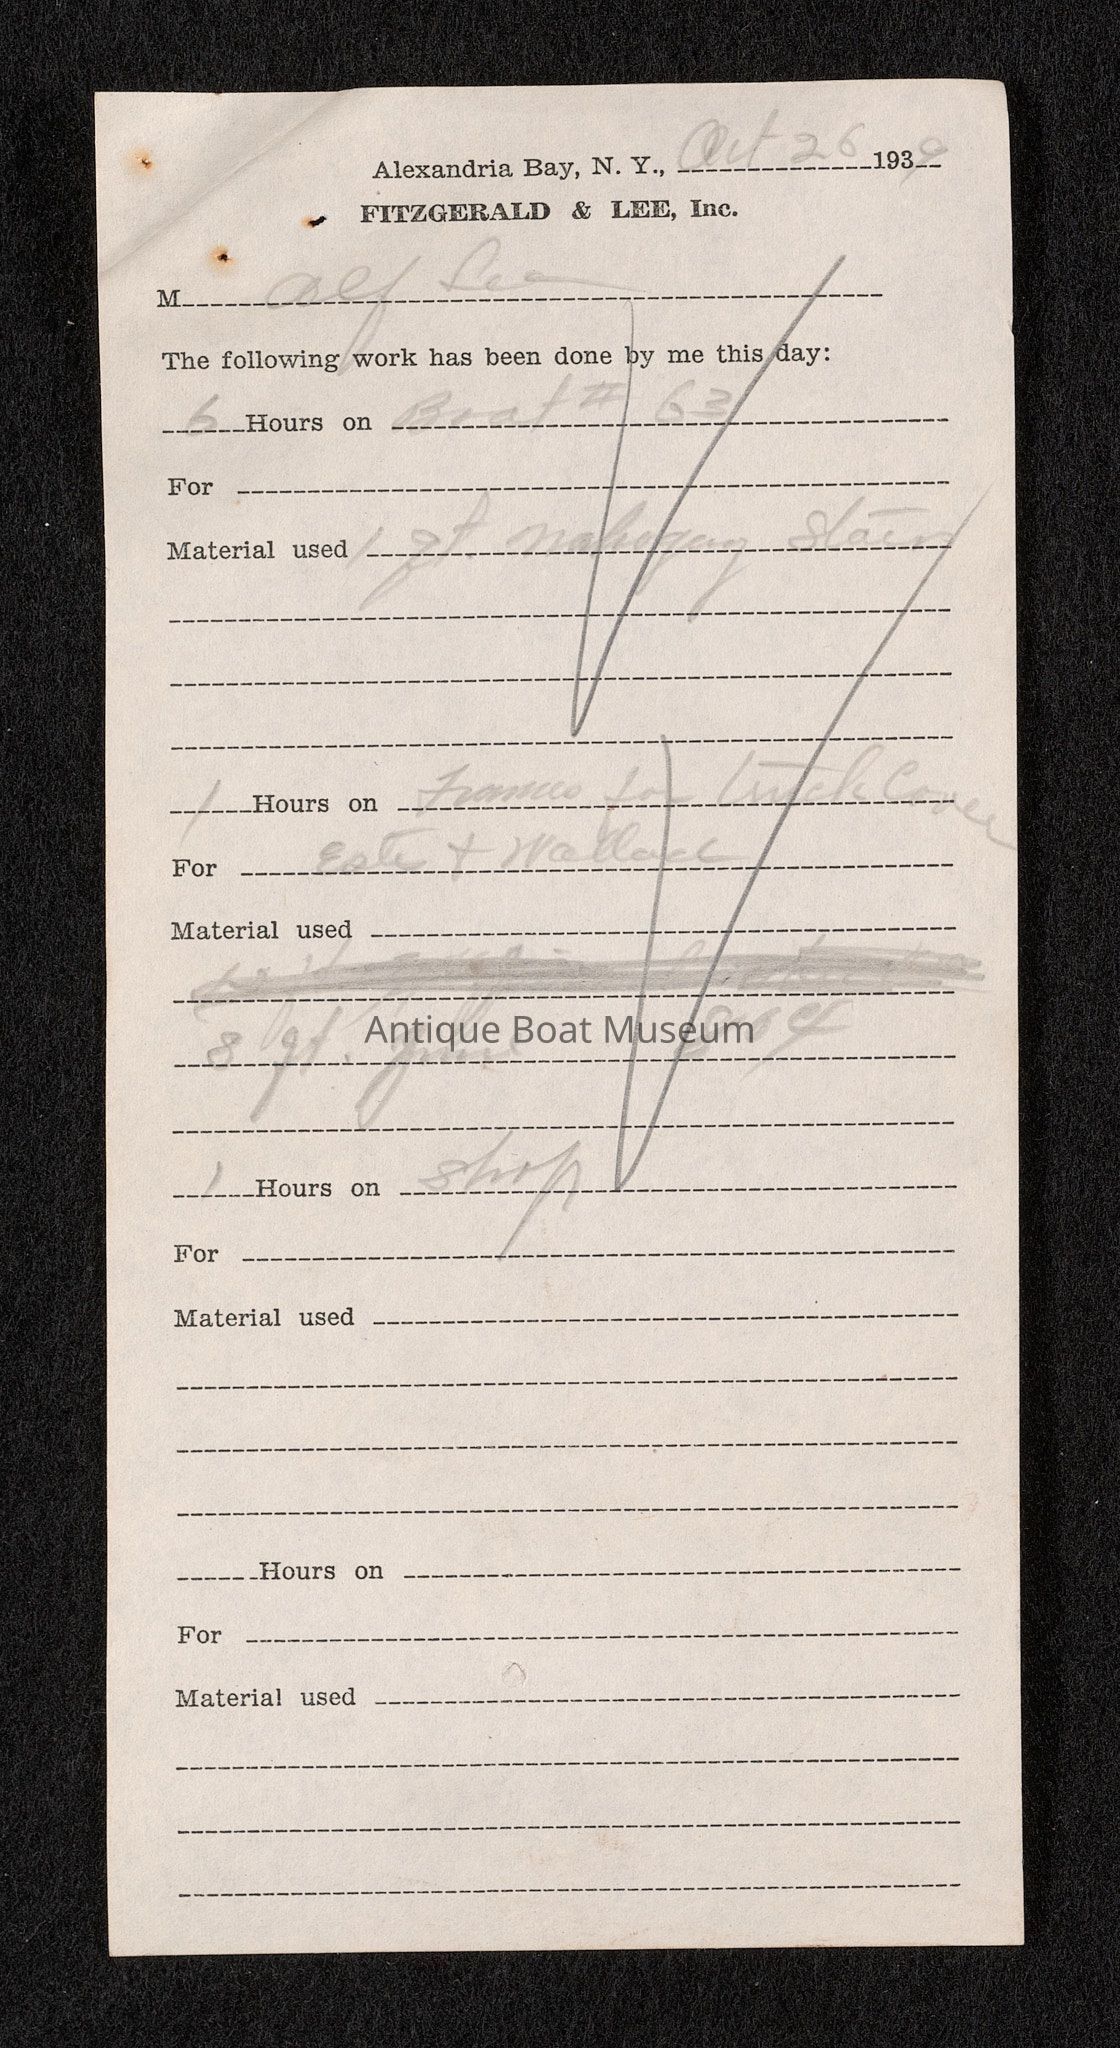 Alexandria Bay, N. Y., Oct 26 1939
FITZGERALD & LEE, Inc.
M Alf Lee
The following work has been done by me this day:
6 Hours on Boat # 63
For
Material used 1 qt. mahogany Stain
1 Hours on Frames for truck Cover
For Estes & Wallace
Material used
8 qt.
Antique Boat Museum
1 Hours on shop
For
Material used
Hours on
For
Material used